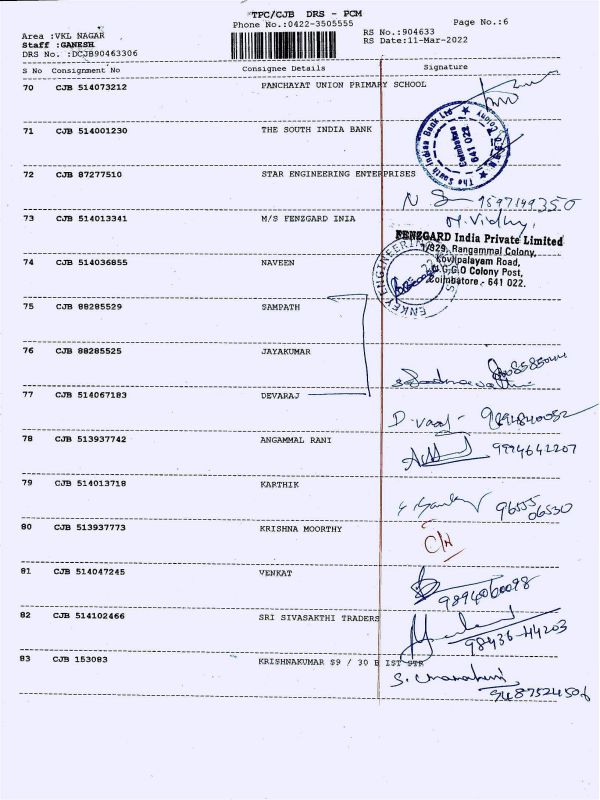 TPC/CJB DRS - PCM
Phone No.:0422-3505555
Page No.:6
Area :VKL NAGAR
Staff :GANESH
DRS No. :DCJB90463306
RS No.:904633
RS Date:11-Mar-2022
S No Consignment No Consignee Details Signature
70 CJB 514073212 PANCHAYAT UNION PRIMARY SCHOOL
71 CJB 514001230 THE SOUTH INDIA BANK
The South Indian Bank Ltd
Coimbatore
641 022
72 CJB 87277510 STAR ENGINEERING ENTERPRISES
73 CJB 514013341 M/S FENZGARD INIA
M. Vidhy
FENZGARD India Private Limited
1/329, Rangammal Colony,
Kovilpalayam Road,
G.G.O Colony Post,
Coimbatore - 641 022.
74 CJB 514036855 NAVEEN
ENKEY ENGINEERING
75 CJB 88285529 SAMPATH
76 CJB 88285525 JAYAKUMAR
77 CJB 514067183 DEVARAJ
78 CJB 513937742 ANGAMMAL RANI
9994642207
79 CJB 514013718 KARTHIK
96555
06530
80 CJB 513937773 KRISHNA MOORTHY
C/H
81 CJB 514047245 VENKAT
9894060098
82 CJB 514102466 SRI SIVASAKTHI TRADERS
98436-44203
83 CJB 153083 KRISHNAKUMAR S9 / 30 B IST STR
9487524506